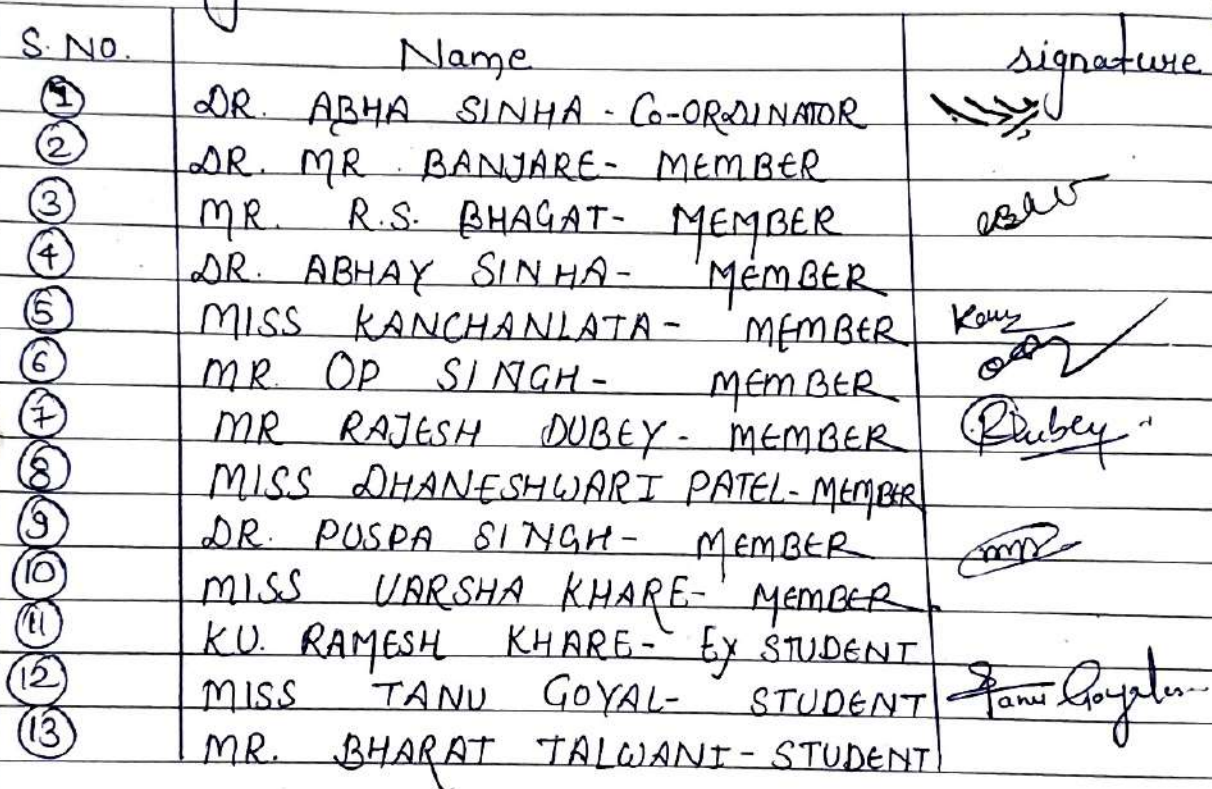 S. NO. Name signature
1 DR. ABHA SINHA - CO-ORDINATOR
2 DR. MR. BANJARE - MEMBER
3 MR. R.S. BHAGAT - MEMBER
4 DR. ABHAY SINHA - MEMBER
5 MISS KANCHANLATA - MEMBER
6 MR. OP SINGH - MEMBER
7 MR RAJESH DUBEY - MEMBER RDubey
8 MISS DHANESHWARI PATEL - MEMBER
9 DR. PUSPA SINGH - MEMBER
10 MISS VARSHA KHARE - MEMBER
11 KU. RAMESH KHARE - EX STUDENT
12 MISS TANU GOYAL - STUDENT Tanu Goyal
13 MR. BHARAT TALWANI - STUDENT